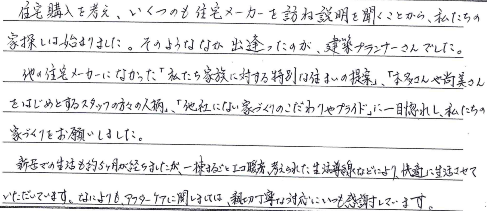 住宅購入を考え、いくつもの住宅メーカーを訪ね説明を聞くことから、私たちの
家探しは始まりました。そのようななか出逢ったのが、建築プランナーさんでした。
他の住宅メーカーになかった「私たち家族に対する特別な住まいの提案」、「本多さんや尚美さん
をはじめとするスタッフの方々の人柄」、「他社にない家づくりのこだわりやプライド」に一目惚れし、私たちの
家づくりをお願いしました。
新居での生活も約5ヶ月が経ちましたが、一棟まるごとエコ暖房、考えられた生活導線などにより、快適に生活させて
いただいています。なによりも、アフターケアに関しましては、親切丁寧な対応にいつも感謝しています。